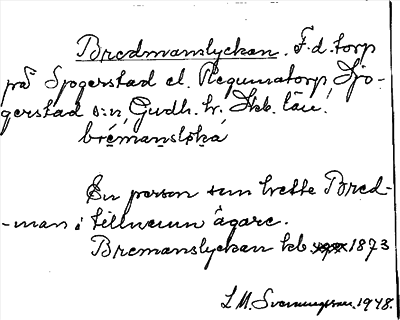 Bredmanslyckan. F.d. torp
på Sjogerstad el. Regumatorp, Sjo-
gerstad s:n, Gudh. hr. Skb. län.
bremanslŏka
En person som hette Bred-
-man i tillnamn ägare.
Bremanslyckan hb 1873
L M. Svenungsson. 1948.